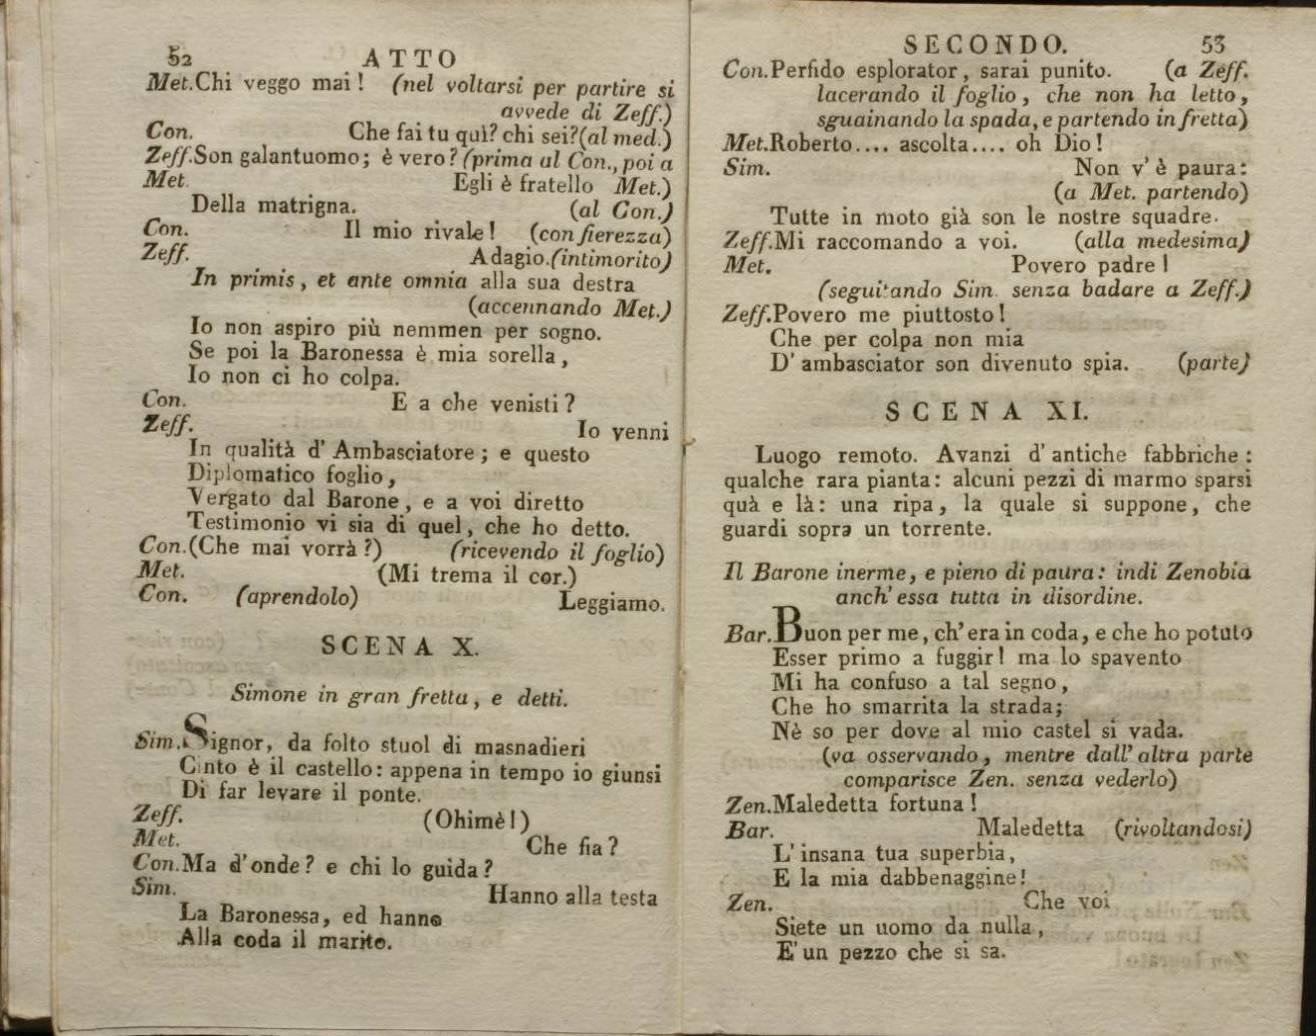 52 ATTO
Met.Chi veggo mai! (nel voltarsi per partire si
avvede di Zeff.)
Con. Che fai tu quì? chi sei?(al med.)
Zeff.Son galantuomo; è vero?(prima al Con., poi a
Met. Egli è fratello Met.)
Della matrigna. (al Con.)
Con. Il mio rivale! (con fierezza)
Zeff. Adagio.(intimorito)
In primis, et ante omnia alla sua destra
(accennando Met.)
Io non aspiro più nemmen per sogno.
Se poi la Baronessa è mia sorella,
Io non ci ho colpa.
Con. E a che venisti?
Zeff. Io venni
In qualità d'Ambasciatore; e questo
Diplomatico foglio,
Vergato dal Barone, e a voi diretto
Testimonio vi sia di quel, che ho detto.
Con.(Che mai vorrà?) (ricevendo il foglio)
Met. (Mi trema il cor.)
Con. (aprendolo) Leggiamo.
SCENA X.
Simone in gran fretta, e detti.
Sim.Signor, da folto stuol di masnadieri
Cinto è il castello: appena in tempo io giunsi
Di far levare il ponte.
Zeff. (Ohimè!)
Met. Che fia?
Con.Ma d'onde? e chi lo guida?
Sim. Hanno alla testa
La Baronessa, ed hanno
Alla coda il marito.
SECONDO. 53
Con.Perfido esplorator, sarai punito. (a Zeff.
lacerando il foglio, che non ha letto,
sguainando la spada, e partendo in fretta)
Met.Roberto.... ascolta.... oh Dio!
Sim. Non v'è paura:
(a Met. partendo)
Tutte in moto già son le nostre squadre.
Zeff.Mi raccomando a voi. (alla medesima)
Met. Povero padre!
(seguitando Sim. senza badare a Zeff.)
Zeff.Povero me piuttosto!
Che per colpa non mia
D'ambasciator son divenuto spia. (parte)
SCENA XI.
Luogo remoto. Avanzi d'antiche fabbriche:
qualche rara pianta: alcuni pezzi di marmo sparsi
quà e là: una ripa, la quale si suppone, che
guardi sopra un torrente.
Il Barone inerme, e pieno di paura: indi Zenobia
anch'essa tutta in disordine.
Bar.Buon per me, ch'era in coda, e che ho potuto
Esser primo a fuggir! ma lo spavento
Mi ha confuso a tal segno,
Che ho smarrita la strada;
Nè so per dove al mio castel si vada.
(va osservando, mentre dall'altra parte
comparisce Zen. senza vederlo)
Zen.Maledetta fortuna!
Bar. Maledetta (rivoltandosi)
L'insana tua superbia,
E la mia dabbenaggine!
Zen. Che voi
Siete un uomo da nulla,
E'un pezzo che si sa.